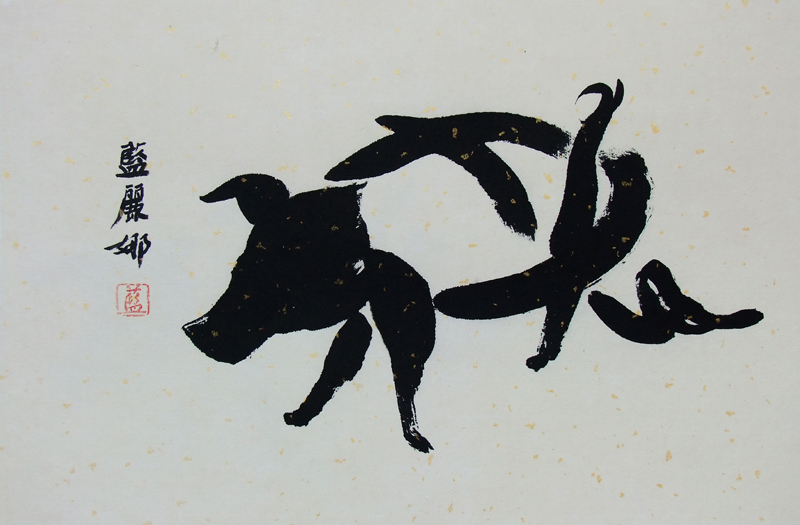 藍麗娜
藍